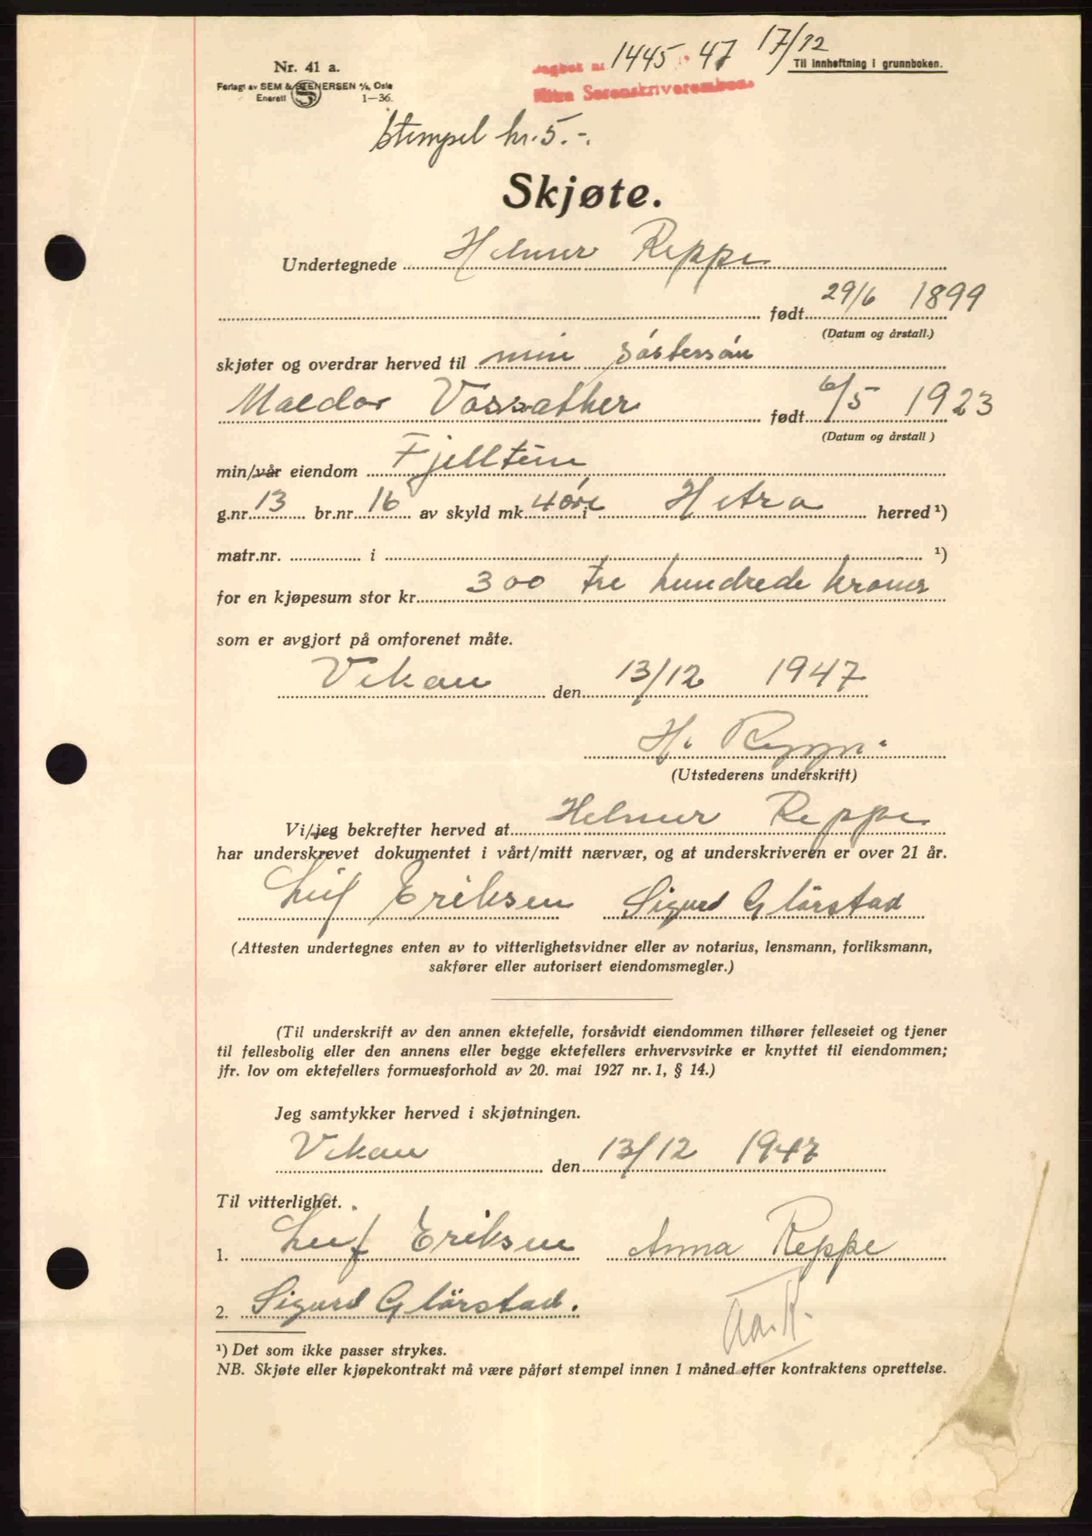 Nr. 41 a.
Forlagt av SEM & STENERSEN A/S, Oslo
Enerett 1—36.
1445 - 47 17/12
Til innheftning i grunnboken.
Hitra Sorenskriverembede
Stempel kr. 5.-.
Skjøte.
Undertegnede Helmer Reppe
født 29/6 1899
(Datum og årstall.)
skjøter og overdrar herved til min søstersøn
Maldor Vassather født 6/5 1923
(Datum og årstall)
min/vår eiendom Fjellheim
g.nr 13 br.nr 16 av skyld mk 4 øre i Hitra herred ¹)
matr.nr. i ¹)
for en kjøpesum stor kr. 300 tre hundrede kroner
som er avgjort på omforenet måte.
Vikan den 13/12 1947
H. Reppe.
(Utstederens underskrift)
Vi/jeg bekrefter herved at Helmer Reppe
har underskrevet dokumentet i vårt/mitt nærvær, og at underskriveren er over 21 år.
Leif Eriksen Sigurd Glörstad
(Attesten undertegnes enten av to vitterlighetsvidner eller av notarius, lensmann, forliksmann,
sakfører eller autorisert eiendomsmegler.)
(Til underskrift av den annen ektefelle, forsåvidt eiendommen tilhører felleseiet og tjener
til fellesbolig eller den annens eller begge ektefellers erhvervsvirke er knyttet til eiendommen;
jfr. lov om ektefellers formuesforhold av 20. mai 1927 nr. 1, § 14.)
Jeg samtykker herved i skjøtningen.
Vikan den 13/12 1947
Til vitterlighet.
1. Leif Eriksen Anna Reppe
2. Sigurd Glörstad.
¹) Det som ikke passer strykes.
NB. Skjøte eller kjøpekontrakt må være påført stempel innen 1 måned efter kontraktens oprettelse.